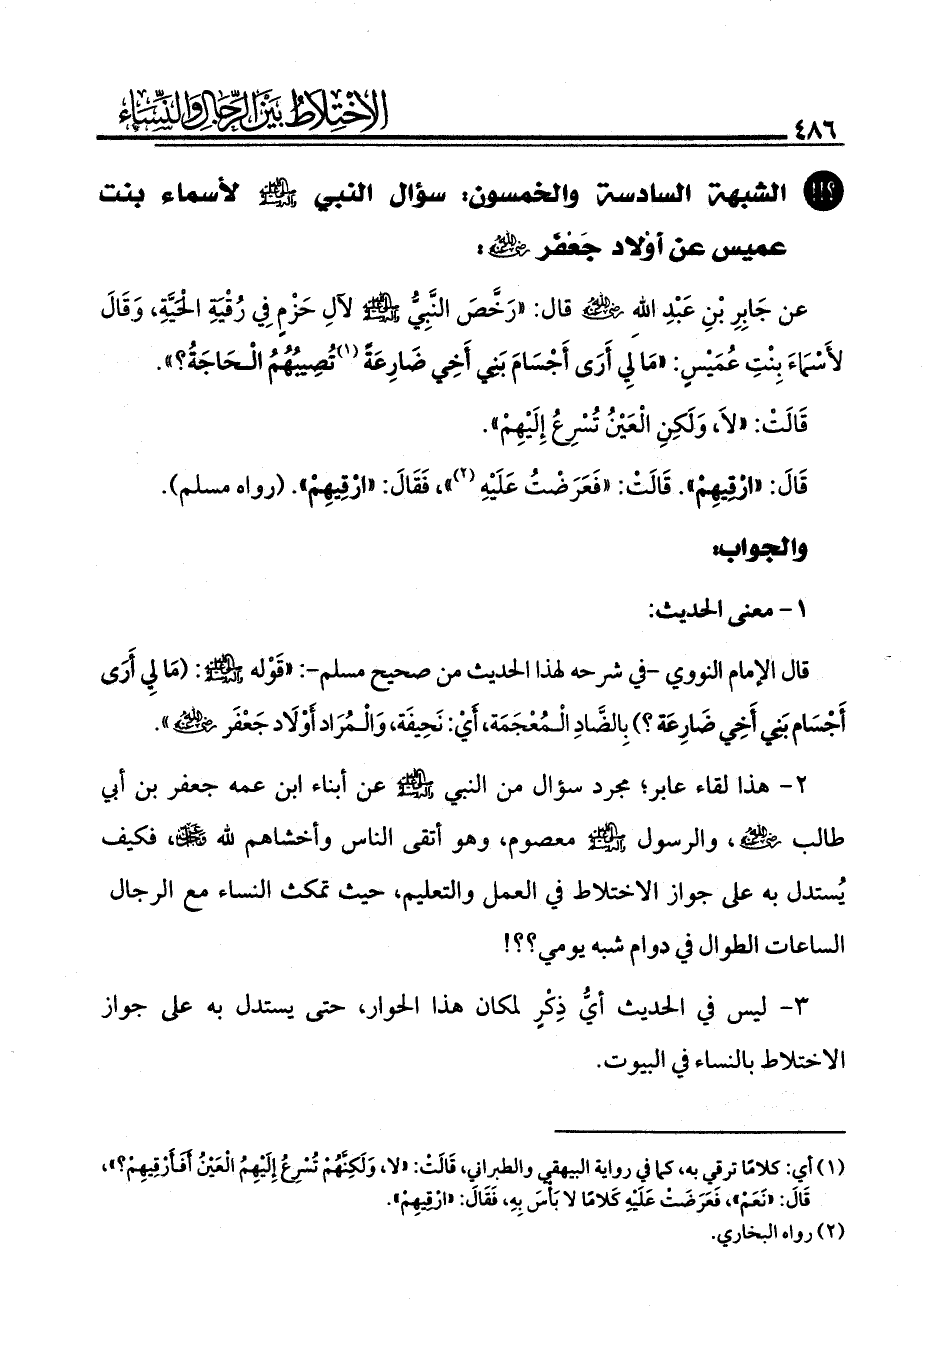 الاختلاط بين الرجال والنساء
٤٨٦
الشبهة السادسة والخمسون: سؤال النبي ﷺ لأسماء بنت
عميس عن أوْلاد جَعْفَر رضي الله عنه:
عن جَابِرِ بْنِ عَبْدِ الله رضي الله عنه قال: «رَخَّصَ النَّبِيُّ ﷺ لآلِ حَزْمٍ فِي رُقْيَةِ الْحَيَّةِ، وَقَالَ
لأَسْمَاءَ بِنْتِ عُمَيْسٍ: «مَا لِي أَرَى أَجْسَامَ بَنِي أَخِي ضَارِعَةً (١) تُصِيبُهُمُ الْحَاجَةُ؟».
قَالَتْ: «لاَ، وَلَكِنِ الْعَيْنُ تُسْرِعُ إِلَيْهِمْ».
قَالَ: «ارْقِيهِمْ». قَالَتْ: «فَعَرَضْتُ عَلَيْهِ (٢)»، فَقَالَ: «ارْقِيهِمْ». (رواه مسلم).
والجواب:
١- معنى الحديث:
قال الإمام النووي -في شرحه لهذا الحديث من صحيح مسلم-: «قَوْله ﷺ: (مَا لِي أَرَى
أَجْسَام بَنِي أَخِي ضَارِعَة ؟) بِالضَّادِ الْمُعْجَمَة، أَيْ: نَحِيفَة، وَالْمُرَاد أَوْلَاد جَعْفَر رضي الله عنه».
٢- هذا لقاء عابر؛ مجرد سؤال من النبي ﷺ عن أبناء ابن عمه جعفر بن أبي
طالب رضي الله عنه، والرسول ﷺ معصوم، وهو أتقى الناس وأخشاهم لله عز وجل، فكيف
يُستدل به على جواز الاختلاط في العمل والتعليم، حيث تمكث النساء مع الرجال
الساعات الطوال في دوام شبه يومي؟؟!
٣- ليس في الحديث أيُّ ذِكْرٍ لمكان هذا الحوار، حتى يستدل به على جواز
الاختلاط بالنساء في البيوت.
(١) أي: كلامًا ترقي به، كما في رواية البيهقي والطبراني، قَالَتْ: «لا، وَلَكِنَّهُمْ تُسْرِعُ إِلَيْهِمُ الْعَيْنُ أَفَأَرْقِيهِمْ؟»،
قَالَ: «نَعَمْ»، فَعَرَضَتْ عَلَيْهِ كَلامًا لا بَأْسَ بِهِ، فَقَالَ: «ارْقِيهِمْ».
(٢) رواه البخاري.